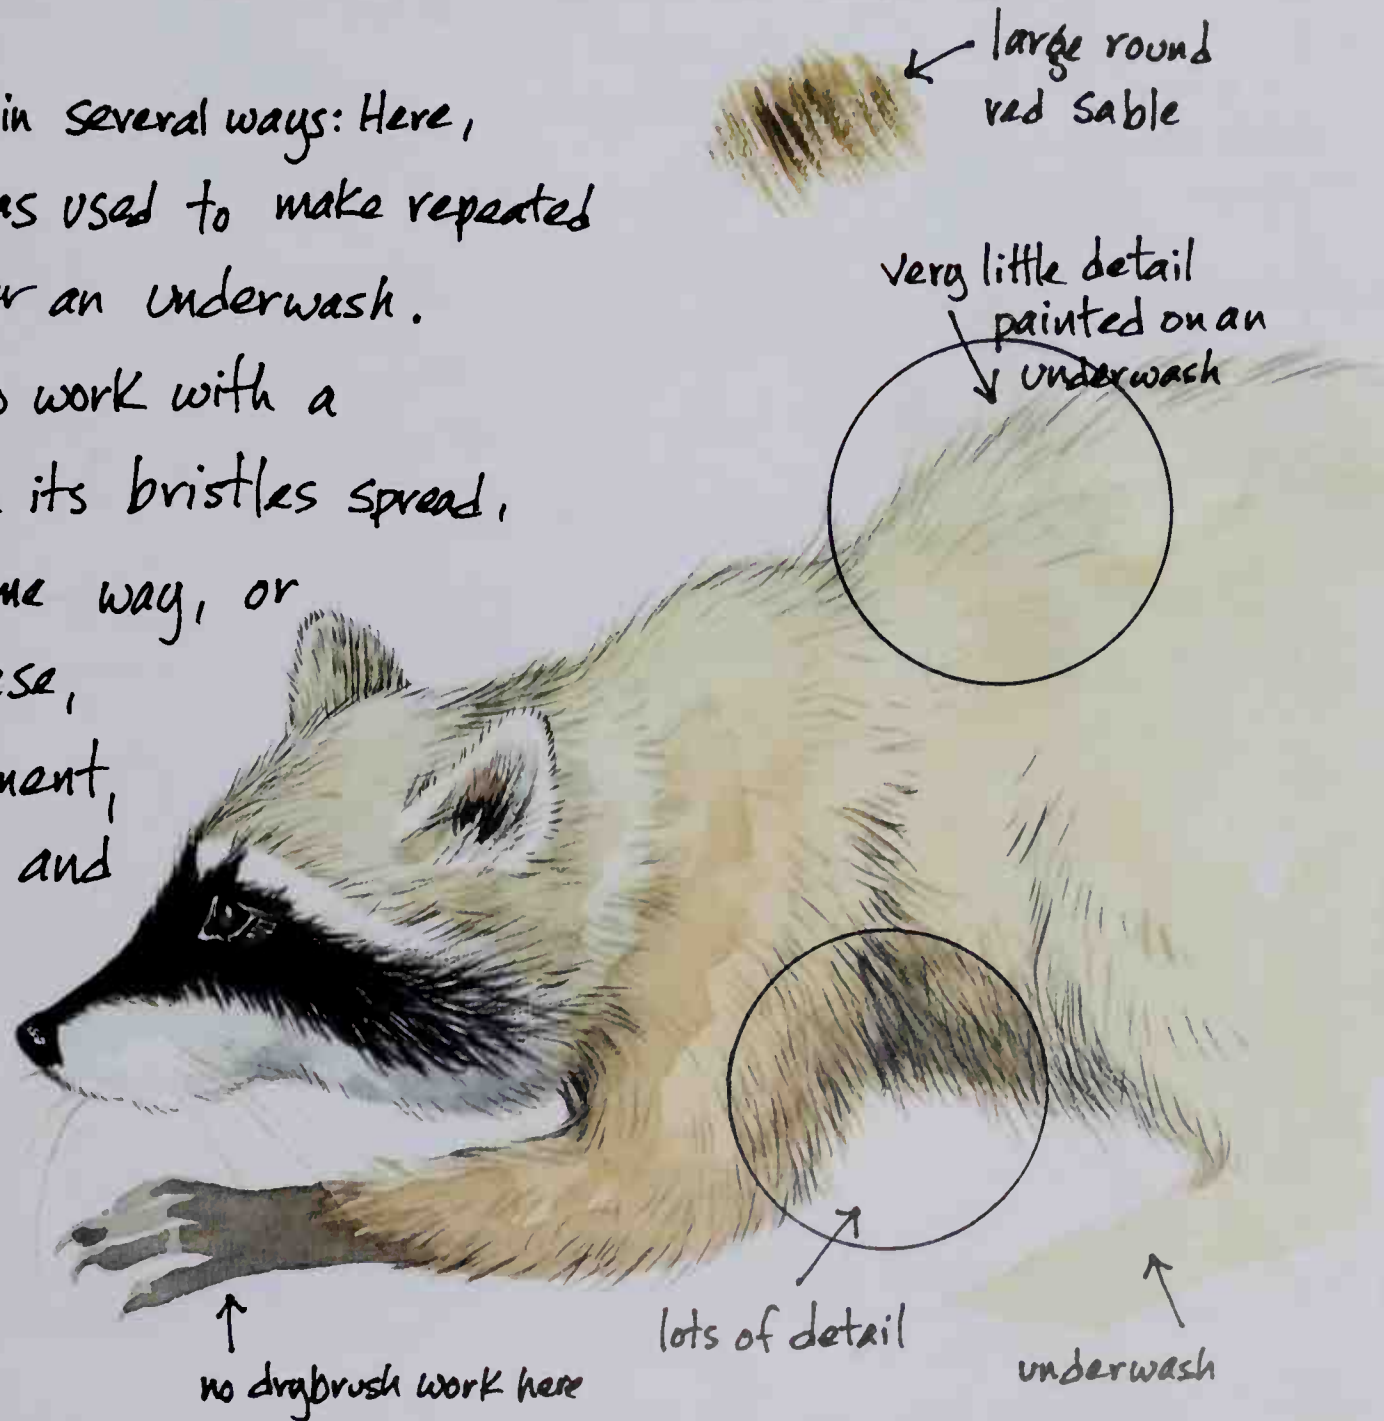 in several ways: Here,
used to make repeated
an underwash.
work with a
its bristles spread,
way, or
and
large round
red sable
very little detail
painted on an
underwash
lots of detail
underwash
no drybrush work here